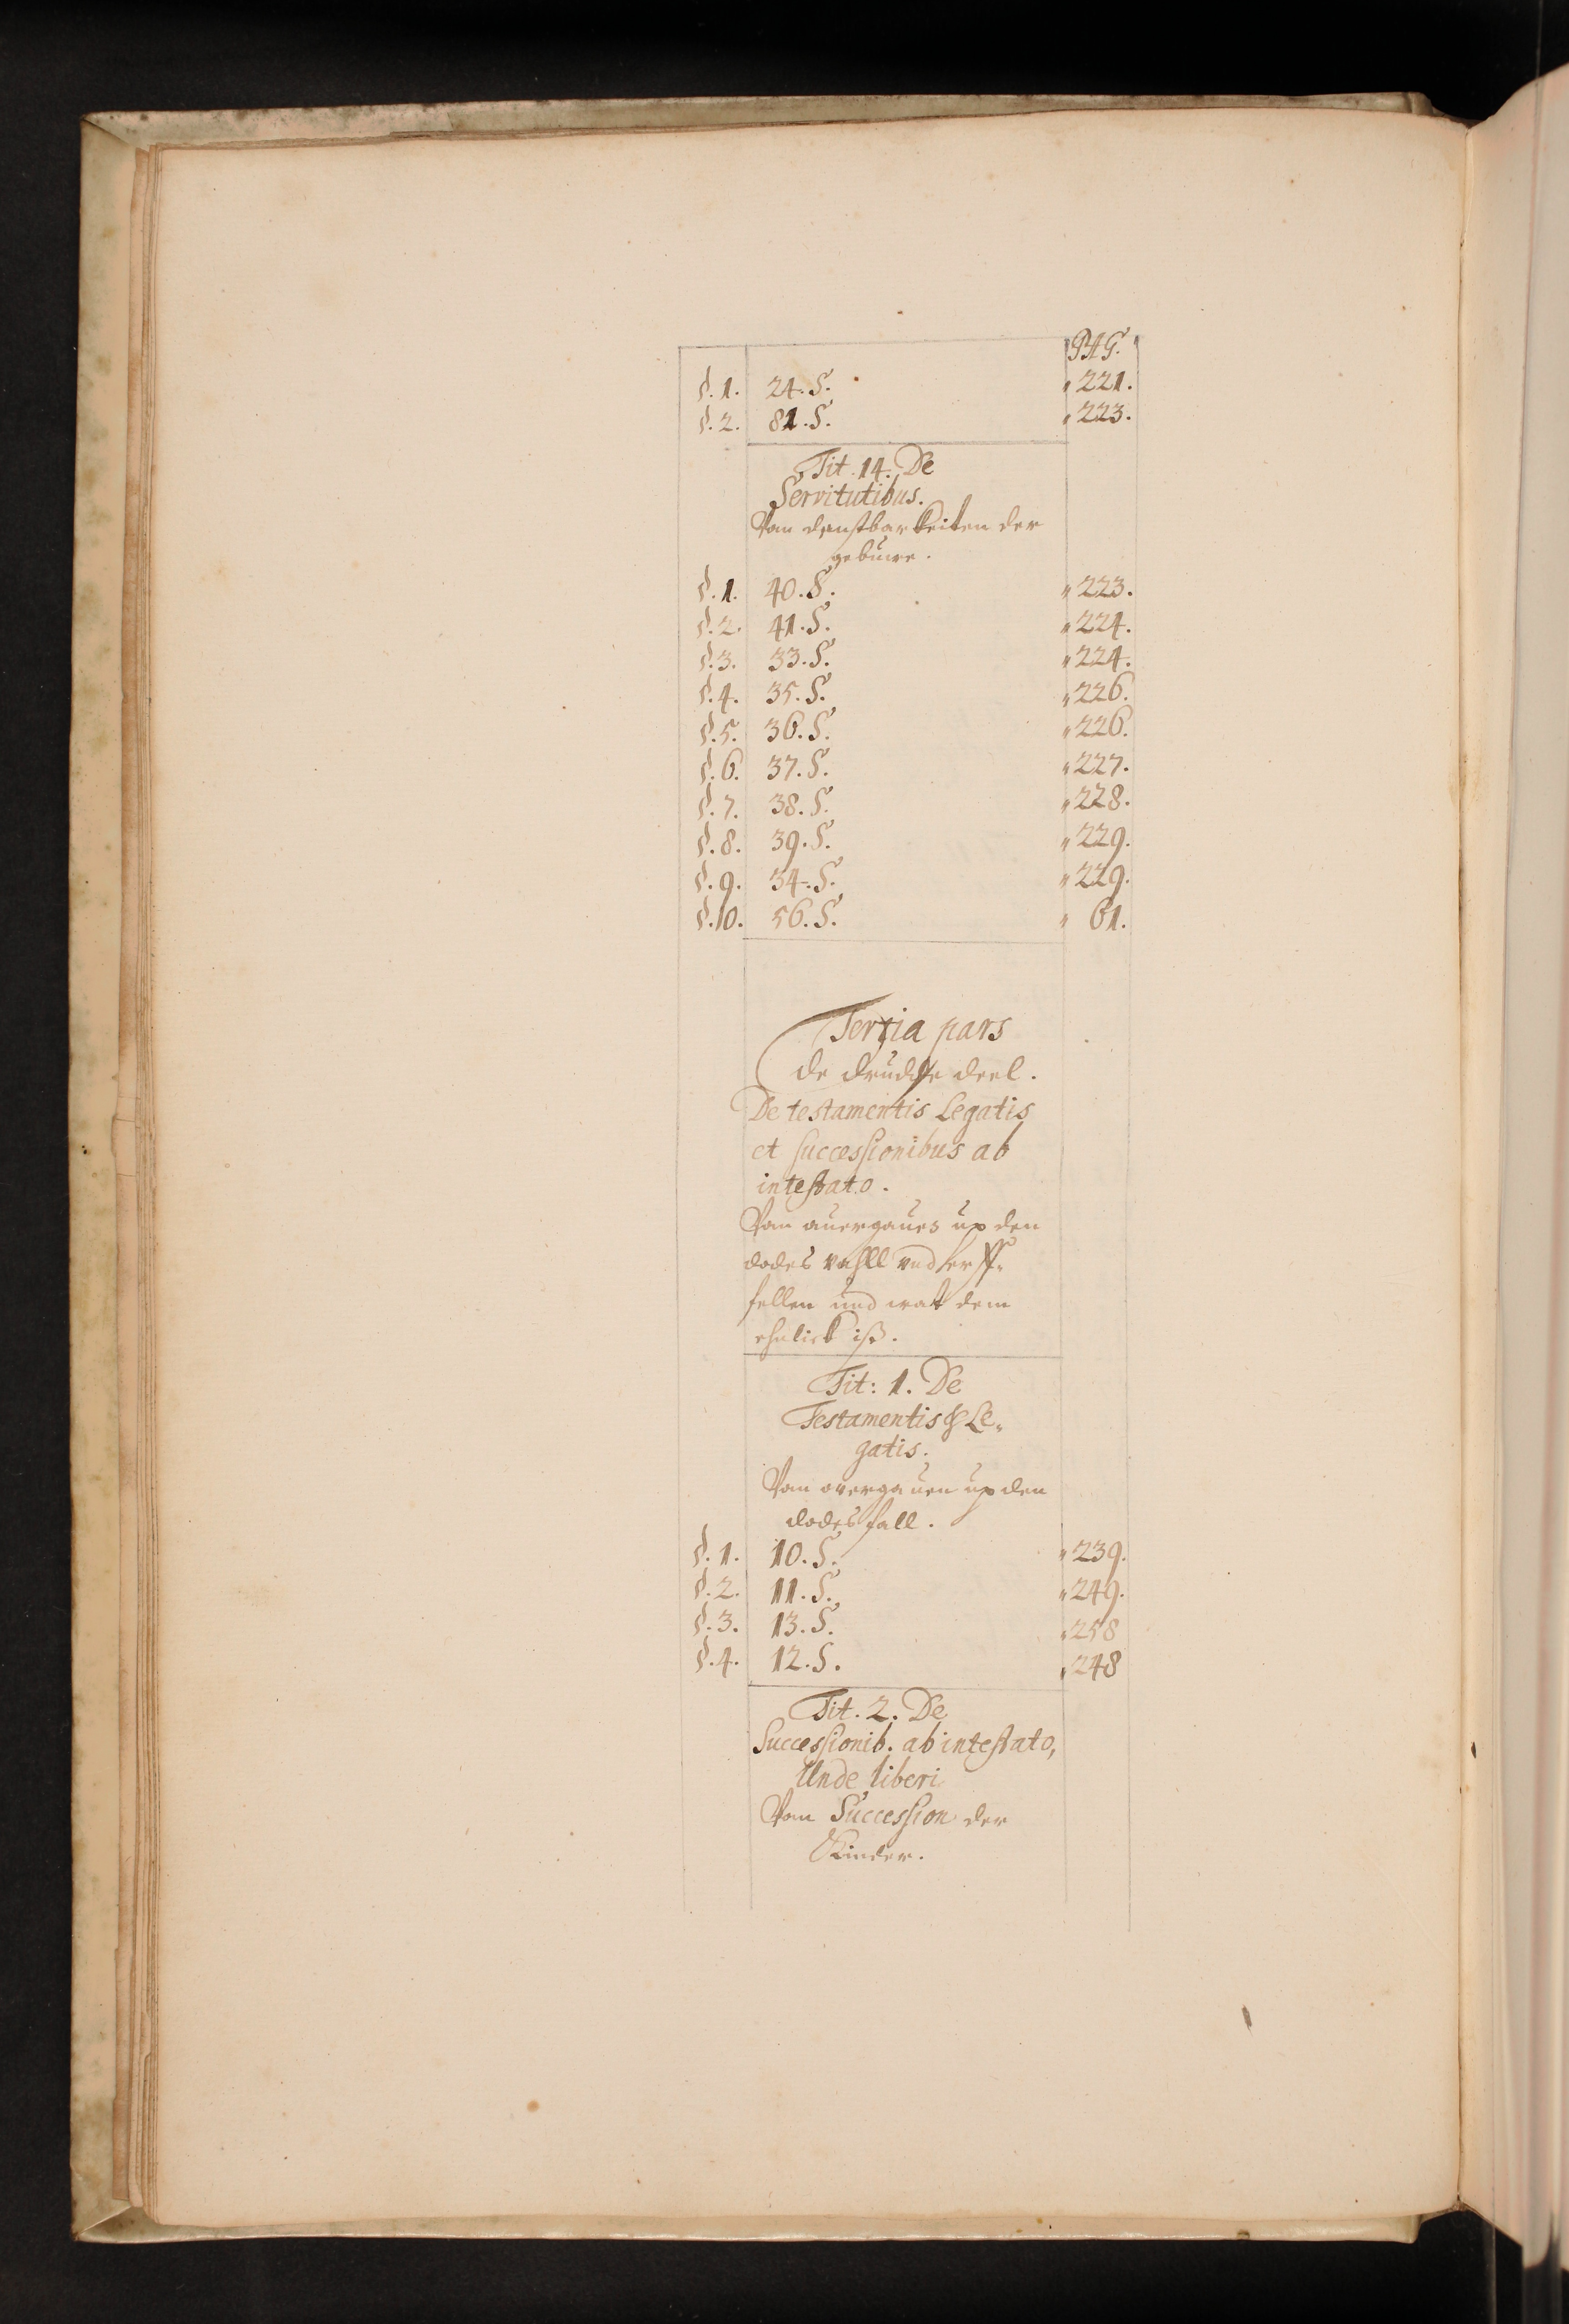 PAG.
§. 1. 24. S. " 221.
§. 2. 81. S. " 223.
Tit. 14. De
Servitutibus.
Van denstbarkeiten der
gebuwe.
§. 1. 40. S. " 223.
§. 2. 41. S. " 224.
§. 3. 33. S. " 224.
§. 4. 35. S. " 226.
§. 5. 36. S. " 226.
§. 6. 37. S. " 227.
§. 7. 38. S. " 228.
§. 8. 39. S. " 229.
§. 9. 34. S. " 229.
§. 10. 56. S. " 61.
Tertia pars
de drudde deel.
De testamentis Legatis
et successionibus ab
intestato.
Van auergaues up den
dodes vahll und erff„
fellen und wat dem
ehnlick iß.
Tit: 1. De
Testamentis & Le„
gatis.
Van overgauen up den
dodesfall.
§. 1. 10. S. " 239.
§. 2. 11. S. " 249.
§. 3. 13. S. " 258
§. 4. 12. S. " 248
Tit. 2. De
Successionib. ab intestato,
Unde liberi
Van Succession der
Kinder.